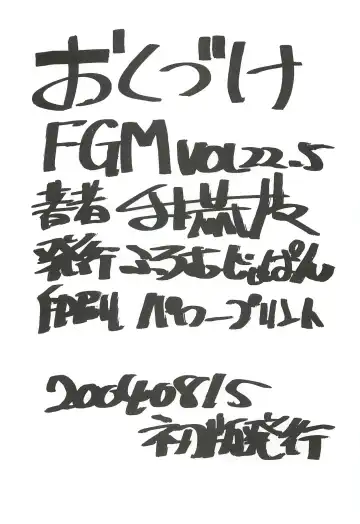 おくづけ
FGM VOL22.5
著者 千槍茂
発行 ふろむじゃぱん
印刷 パワープリント
20040815
初版発行